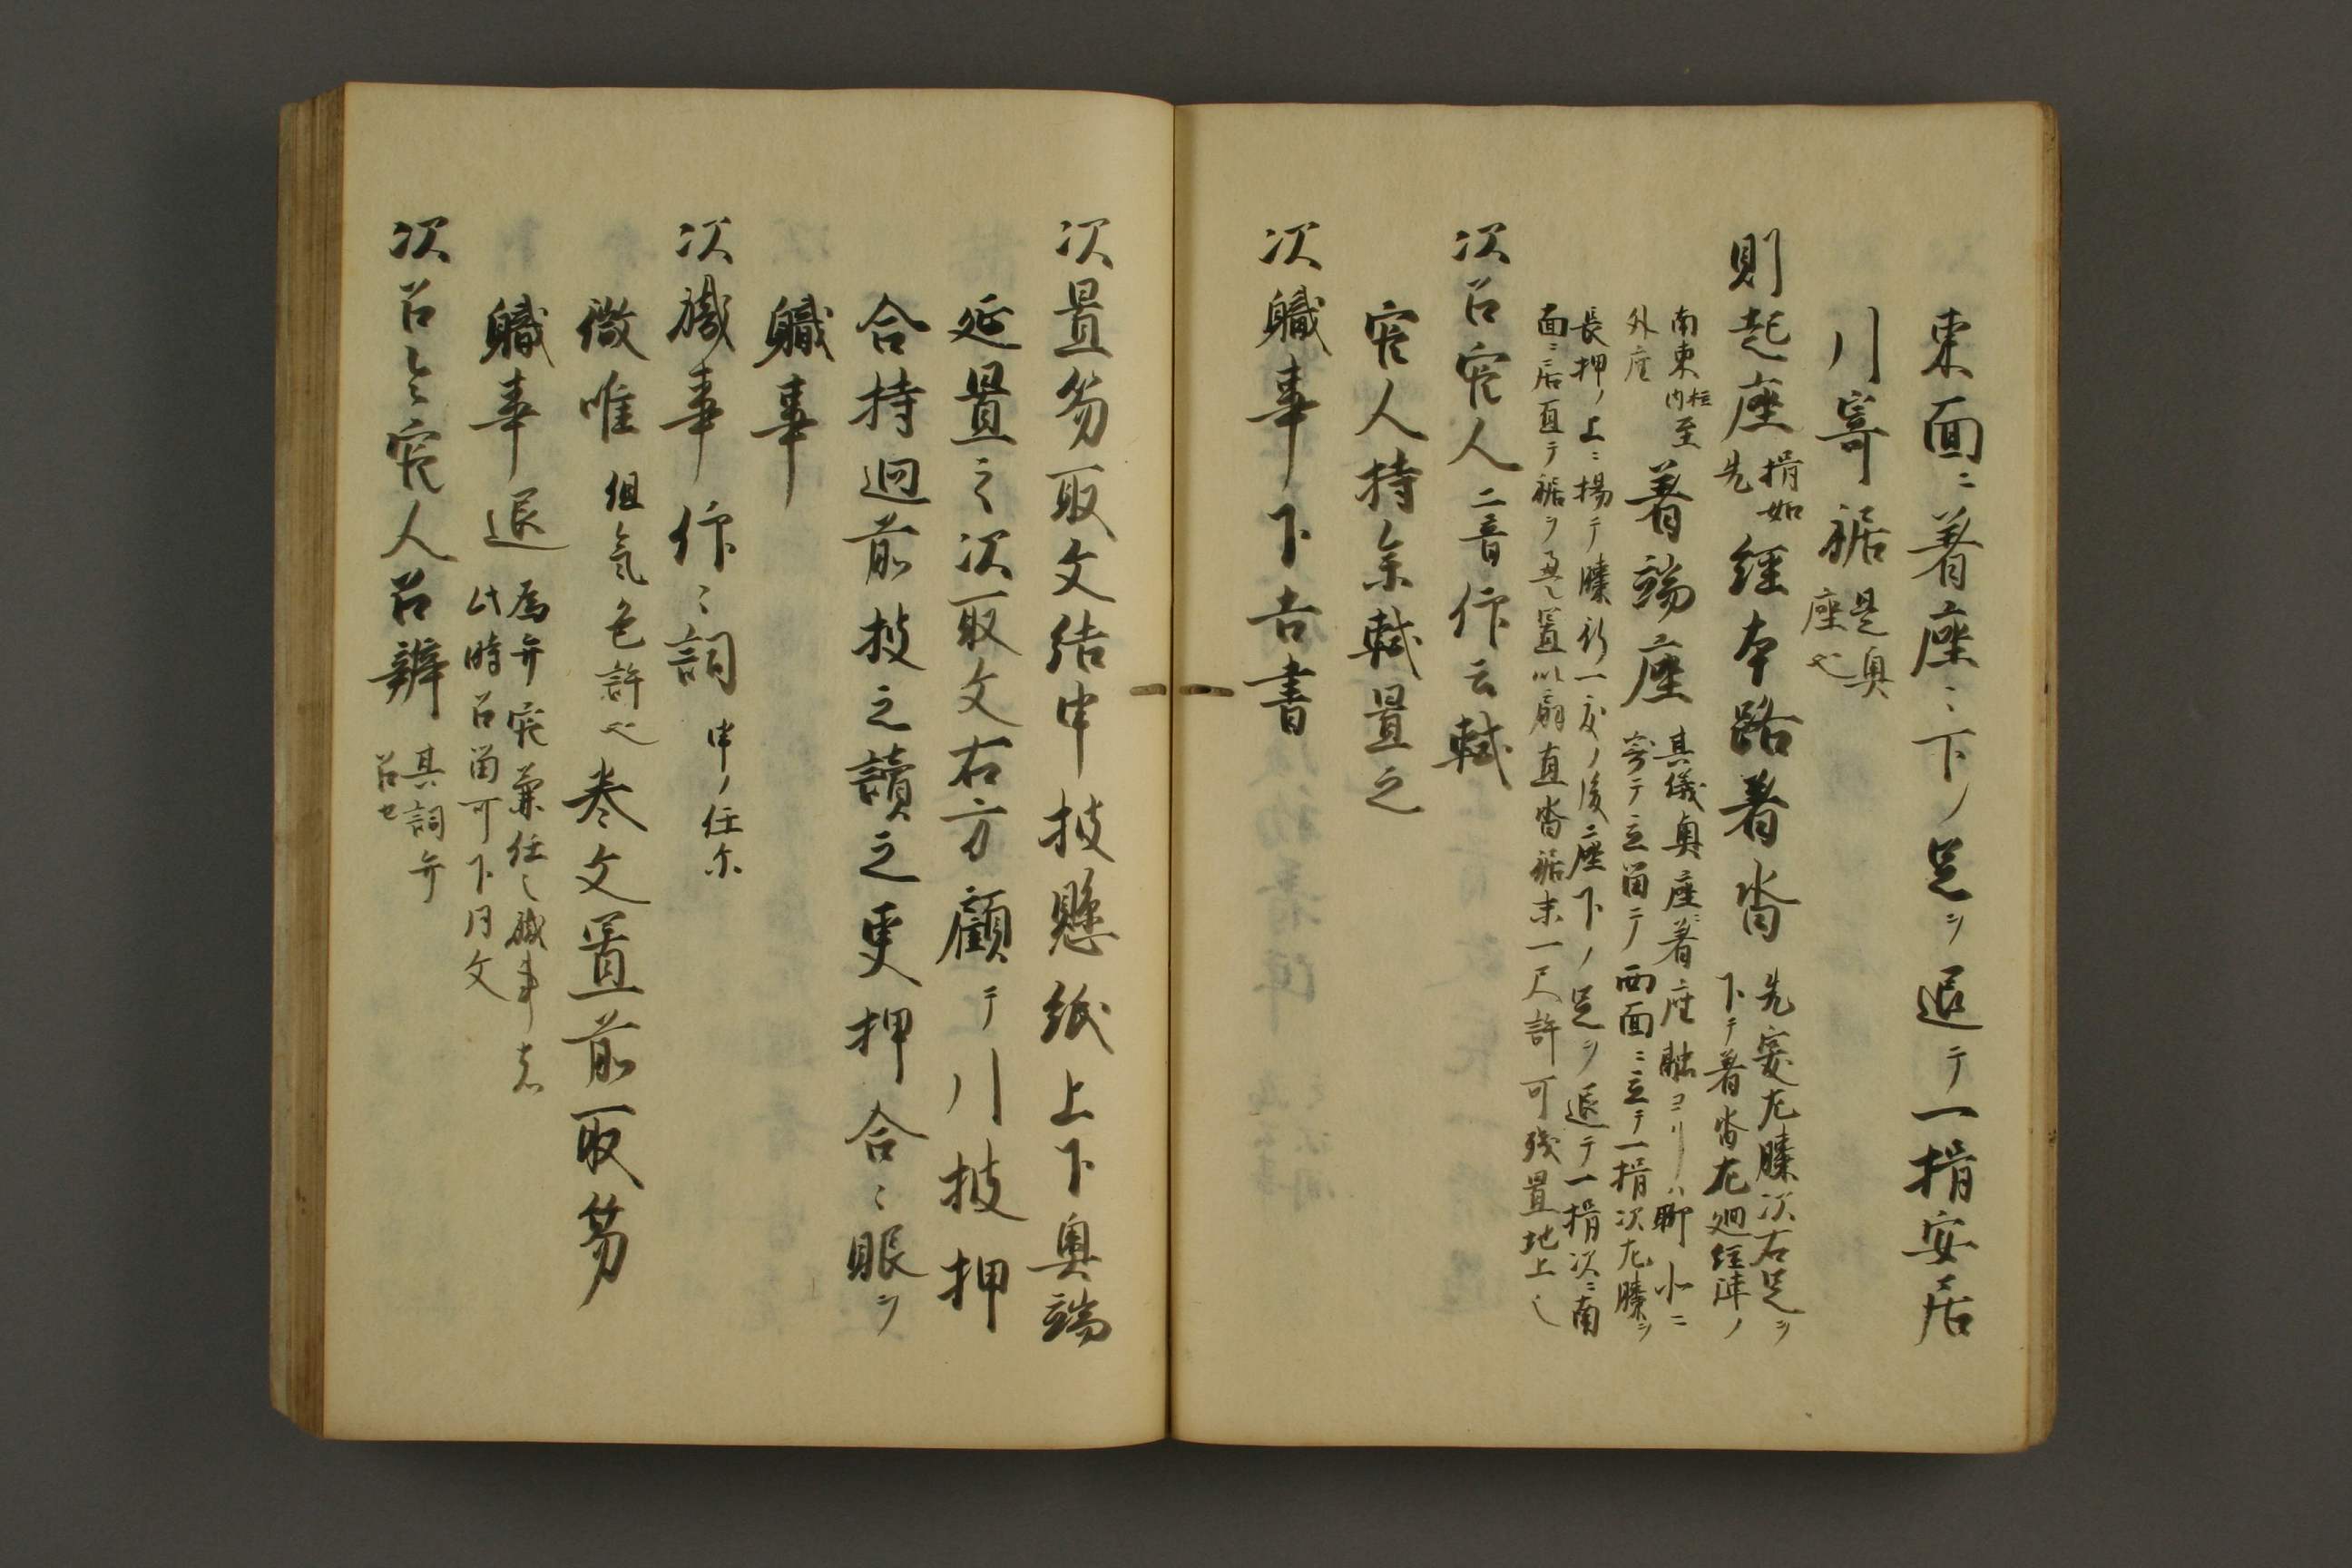 東面ニ著座ミ下ノ足ヲ退テ一揖安居
川寄裾是奥
座也
則起座揖如
先
経本路着沓先突左膝次右足ヲ
下テ着沓左廻経陣ノ
南東柱内至
外座
著端座其儀奥座ニ著座
聊北ニ
寄テ立留テ西面ニ立テ一揖次左膝ヲ
長押ノ上ニ揚テ膝行一度ノ後ニ座下ノ足ヲ退テ一揖次ニ南
面ニ居直テ裾ヲ置以扇直沓裾末一尺許可残置地上
次召官人二音仰云軾
官人持参軾置之
次職事下吉書
次置笏取文結申披懸紙上下奥端
延置之次取文右方顧テ川披押
合持廻前披之讀之更押合ミ眼ヲ
職事
次職事仰ミ詞申ノ任尓
微唯但氣色許也巻文置前取笏
職事退為弁官兼任職事者
此時召留可下同文
次召官人召辨其詞弁
召セ